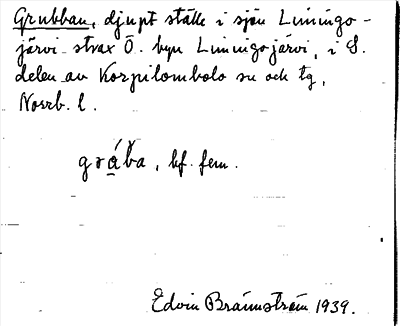 Grubban, djupt ställe i sjön Liningo-
järvi strax Ö. byn Liningojärvi, i S.
delen av Korpilombolo sn och tg,
Norrb. l.
grába, bf. fem.
Edvin Brännström 1939.